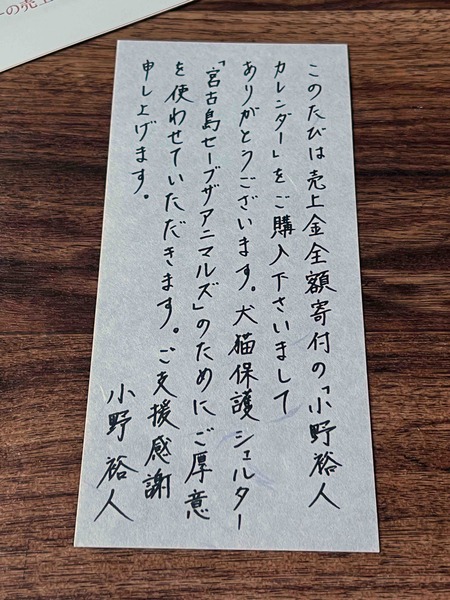 このたびは売上金全額寄付の「小野裕人
カレンダー」をご購入下さいまして
ありがとうございます。犬猫保護シェルター
「宮古島セーブザアニマルズ」のためにご厚意
を使わせていただきます。ご支援感謝
申し上げます。
小野裕人
の売上